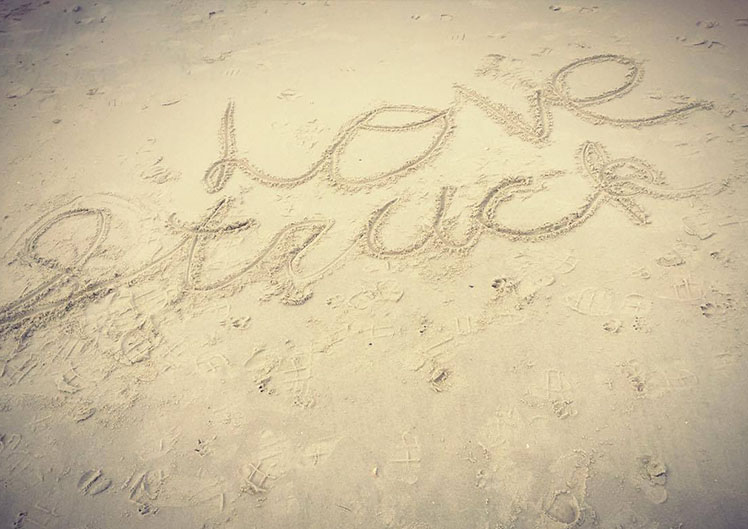 Love
Struck